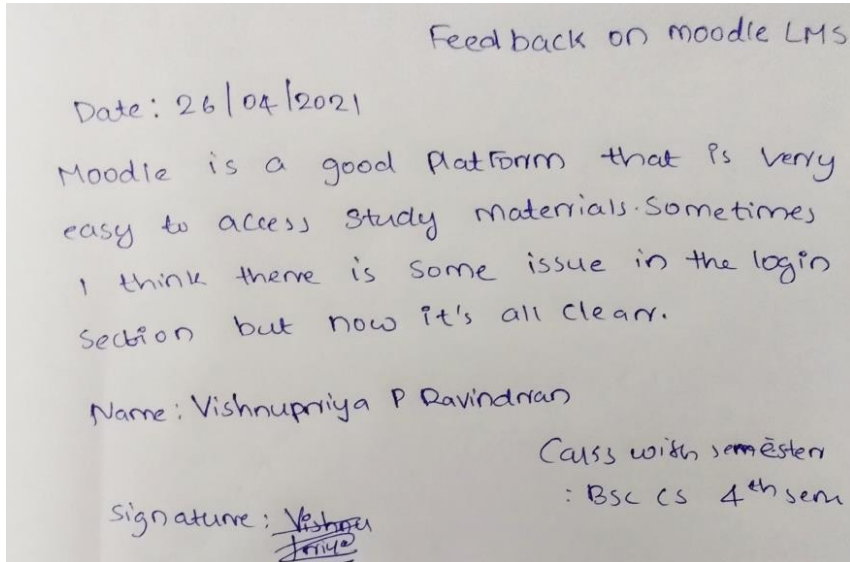 Feed back on moodle LMS
Date: 26/04/2021
Moodle is a good platform that is very
easy to access study materials. Sometimes
I think there is some issue in the login
section but now it's all clear.
Name: Vishnupriya P Ravindran
Calss with semester
: BSC CS 4th sem
Signature: Vishnu
Priya